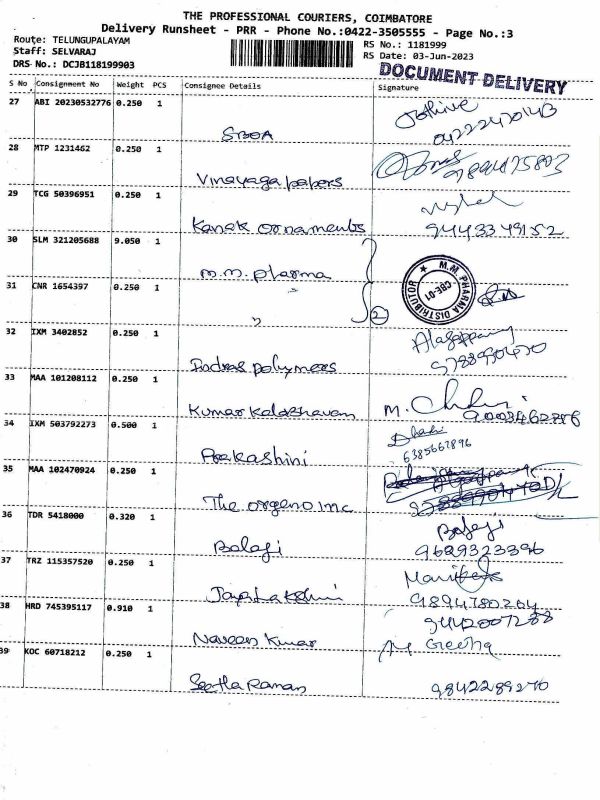 THE PROFESSIONAL COURIERS, COIMBATORE
Delivery Runsheet - PRR - Phone No.:0422-3505555 - Page No.:3
Route: TELUNGUPALAYAM
RS No.: 1181999
Staff: SELVARAJ
RS Date: 03-Jun-2023
DRS No.: DCJB118199903
DOCUMENT DELIVERY
S No Consignment No Weight PCS Consignee Details Signature
27 ABI 20230532776 0.250 1
SBOA
04222470143
28 MTP 1231462 0.250 1
Vinayaga papers
29 TCG 50396951 0.250 1
Kanak ornaments 9443349152
30 SLM 321205688 9.050 1
M.M. pharma
M.M. PHARMA DISTRIBUTOR
CBE-01
31 CNR 1654397 0.250 1
" 2
32 IXM 3402852 0.250 1
Indras polymers
33 MAA 101208112 0.250 1
Kumar Kalabhavan M. 9003462786
34 IXM 503792273 0.500 1
6385667896
Prakashini
35 MAA 102470924 0.250 1
The orgeno inc
36 TDR 5418000 0.320 1
Balaji
Balaji 9629323396
37 TRZ 115357520 0.250 1
Jayalakshmi 9894780204
38 HRD 745395117 0.910 1
9442007288
Naveen Kumar
M Geetha
39 KOC 60718212 0.250 1
Seetha Raman 9842289270